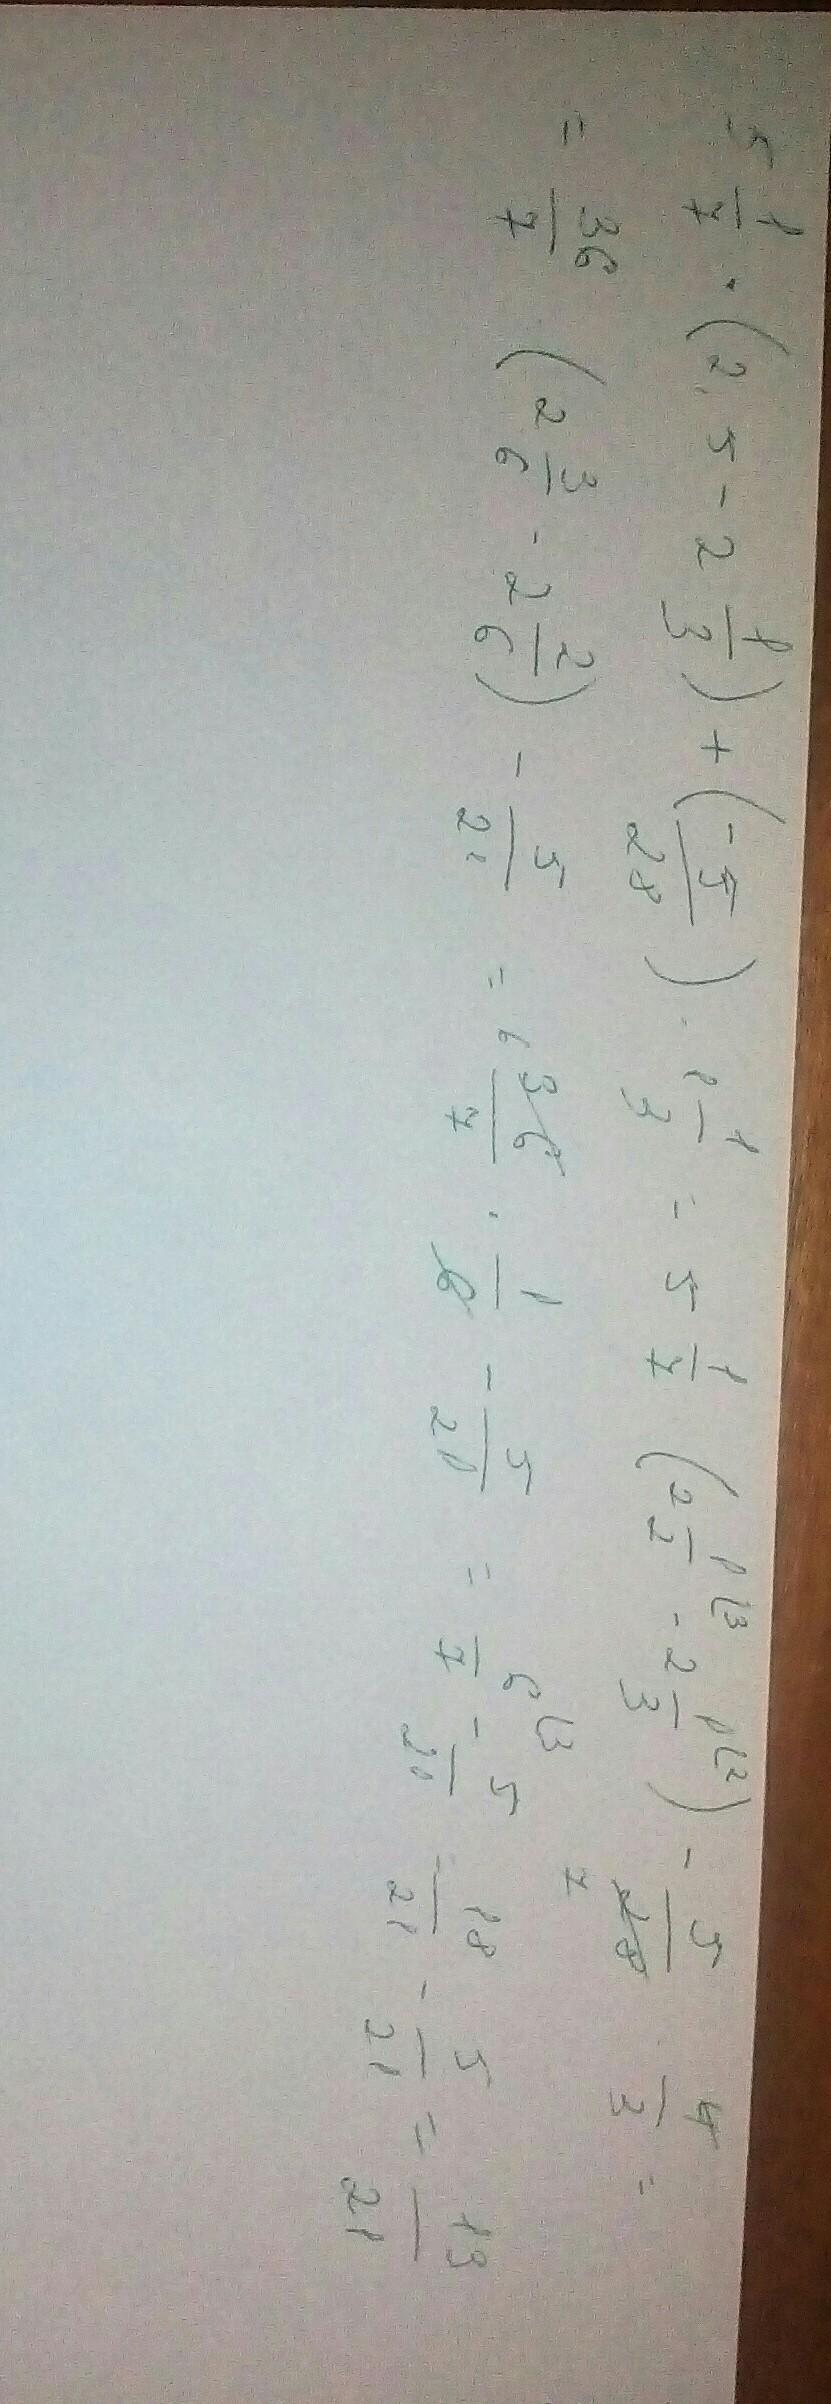 5 1/7 · (2,5 - 2 1/3) + (-5/28) · 1 1/3 = 5 1/7 (2 1/2 ⁽³ - 2 1/3 ⁽²) - 5/28 7 · 4/3 =
= 36/7 (2 3/6 - 2 2/6) - 5/21 = 6 36/7 · 1/6 - 5/21 = 6/7 ⁽³ - 5/21 = 18/21 - 5/21 = 13/21